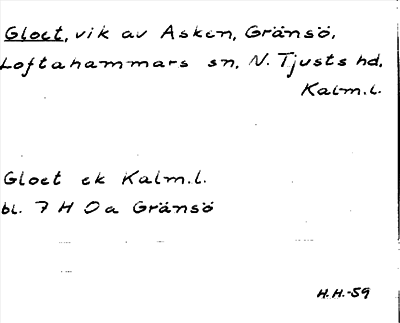 Gloet, vik av Asken, Gränsö,
Loftahammars sn, N. Tjusts hd,
Kalm.l.
Gloet ek Kalm.l.
bl. 7 H 0a Gränsö
H.H.-59